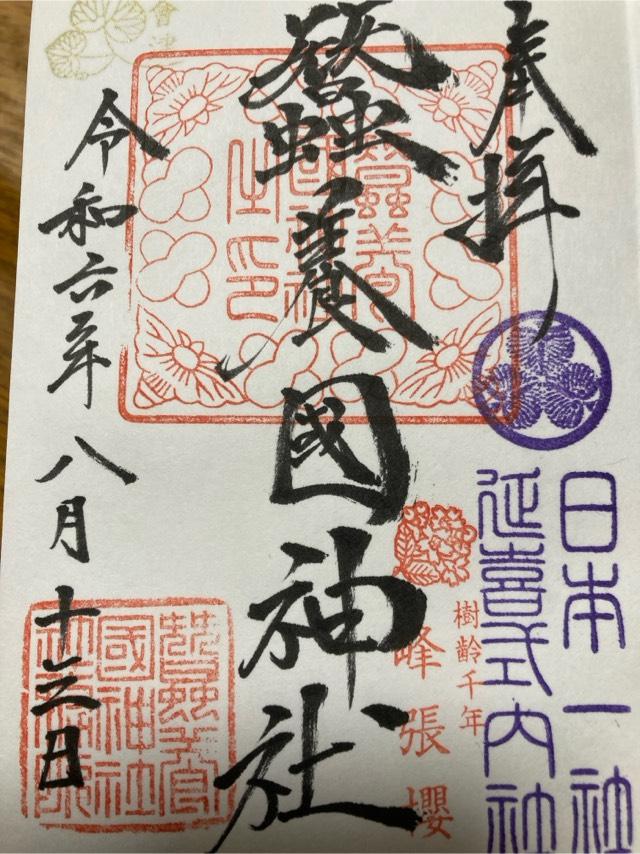 奉拝
日本一社
延喜式内社
樹齢千年
峰張櫻
蠶養國神社
蠶養國神社之印
會津
令和六年八月十三日